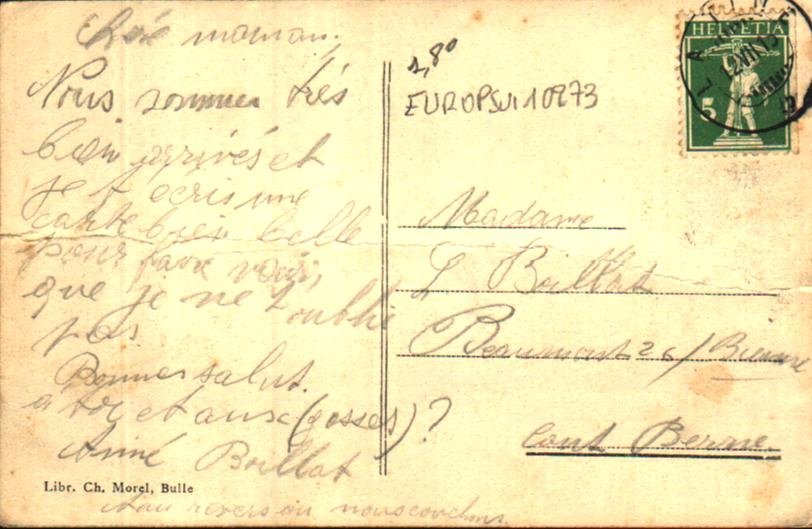 Chère maman,
Nous sommes très
bien arrivés et
je t'écris une
carte bien belle
pour faire voir,
que je ne t'oublie
pas
Bonnes salut.
a toi et aux (gosses)?
Aimé Boillat
Libr. Ch. Morel, Bulle
nous couchons.
1,80
EUROPSUI10873
HELVETIA
5
Madame
L Boillat
Beaumont 26 / Bienne
Cant Berne.